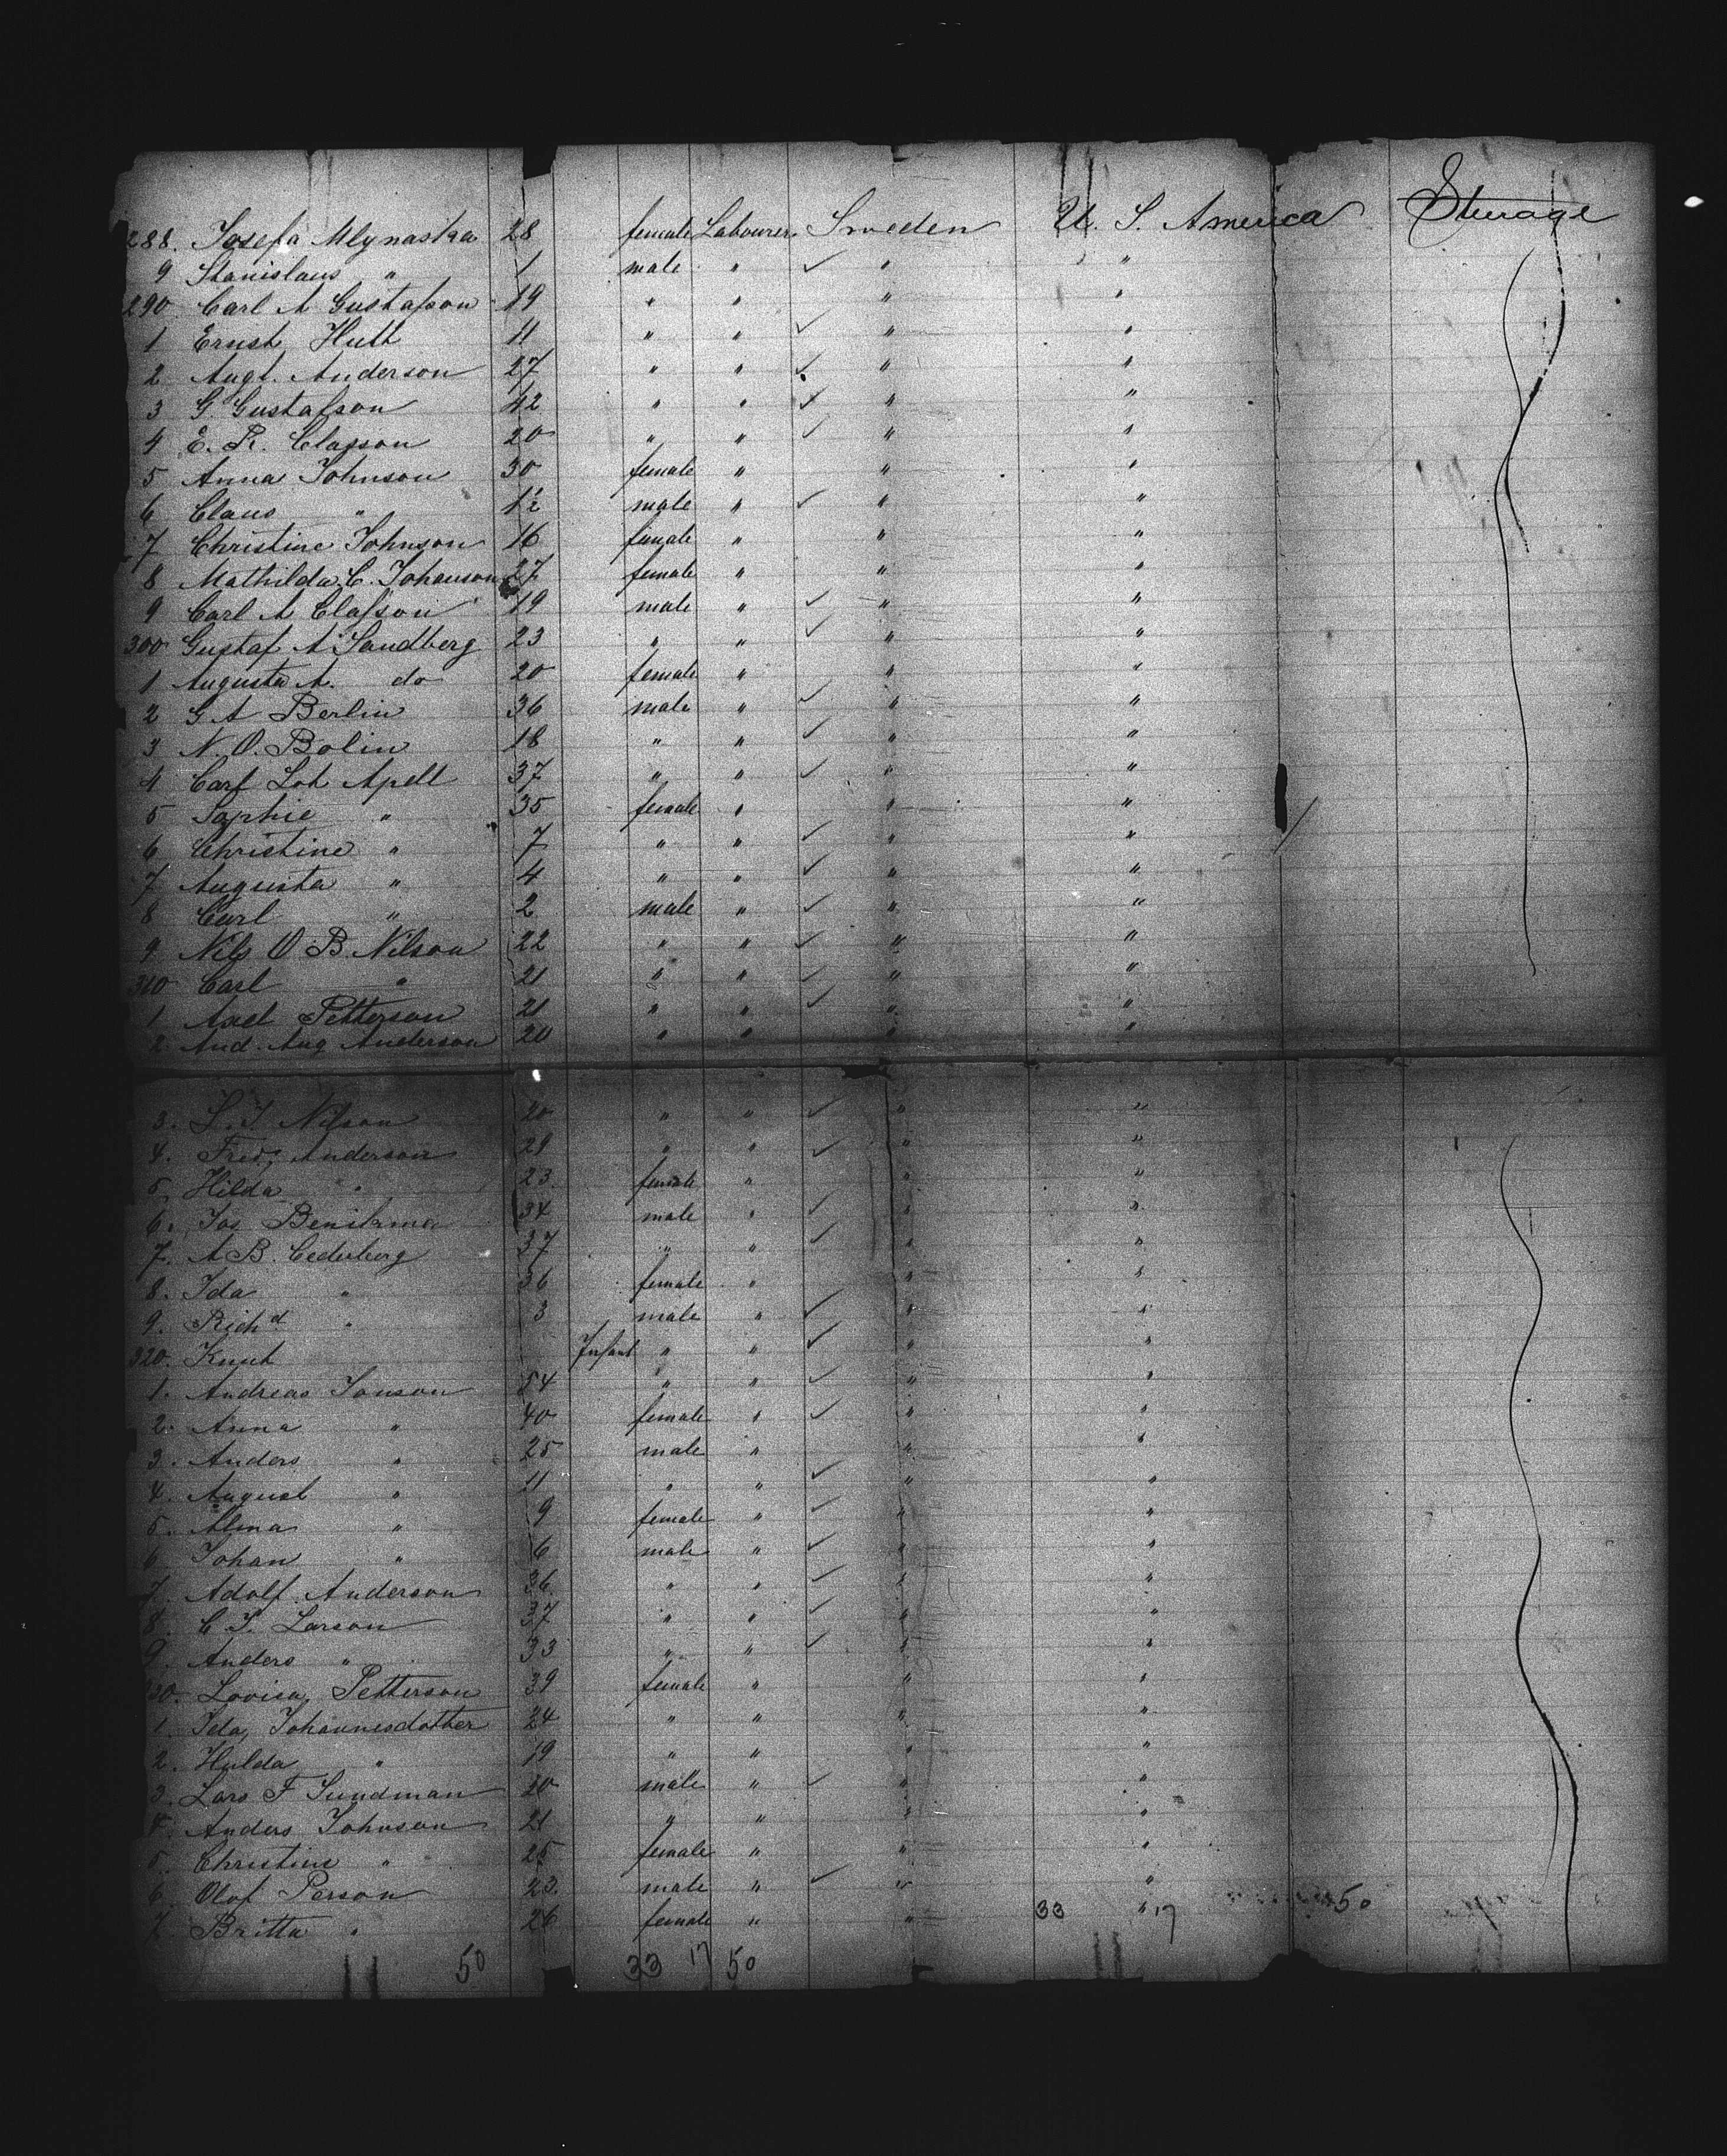 288. Josefa Mlynaska 28 female Labourer Sweden U. S. America Sterage
9 Stanislaus " 1 male " ✓ " "
290 Carl A Gustafson 19 " " " "
1 Ernst Huth 11 " " ✓ " "
2 Augt. Anderson 27 " " ✓ " "
3 G Gustafson 42 " " ✓ " "
4 E. R. Clason 20 " " ✓ " "
5 Anna Johnson 30 female " " "
6 Claus " 1½ male " ✓ " "
7 Christine Johnson 16 female " " "
8 Mathilda C. Johanson 27 female " " "
9 Carl A Classon 19 male " ✓ " "
300 Gustaf A Sandberg 23 " " ✓ " "
1 Augusta A. do 20 female " " "
2 G A Berlin 36 male " ✓ " "
3 N. O. Bolin 18 " " ✓ " "
4 Carl Apell 37 " " ✓ " "
5 Sophie " 35 female " " "
6 Christine " 7 " " ✓ " "
7 Augusta " 4 " " ✓ " "
8 Carl " 2 male " ✓ " "
9 Nils O B Nilson 22 " " ✓ " "
310 Carl " 21 " " ✓ " "
1 Axel Petterson 21 " " ✓ " "
2. And. Aug Anderson 20 " " " "
3. Nilson 20 " " ✓ " "
4. Fred. Anderson 29 " " ✓ " "
5. Hilda " 23 female " " "
6. Jos 34 male " ✓ " "
7. A B. Cederberg 37 " " ✓ " "
8. Ida " 36 female " " "
9. Richd " 3 male " ✓ " "
320. Knut Infant " " ✓ " "
1. Andreas Jonson 54 " " ✓ " "
2. Anna " 40 female " ✓ " "
3. Anders " 25 male " " "
4. August " 11 " " ✓ " "
5. Alma " 9 female " ✓ " "
6 Johan " 6 male " ✓ " "
7. Adolf Anderson 36 " " ✓ " "
8. C J. Larson 37 " " ✓ " "
9. Anders " 33 " " ✓ " "
330. Lovisa Petterson 39 female " " "
1. Ida, Johannesdotter 24 " " " "
2. Hulda " 19 " " " "
3. Lars F Sundman 20 male " ✓ " "
4. Anders Johnson 21 " " " "
5. Christine " 25 female " " "
6. Olof Person 23. male " ✓ " "
7. Britta " 26 female " " 33 " 17 50
50 33 17 50